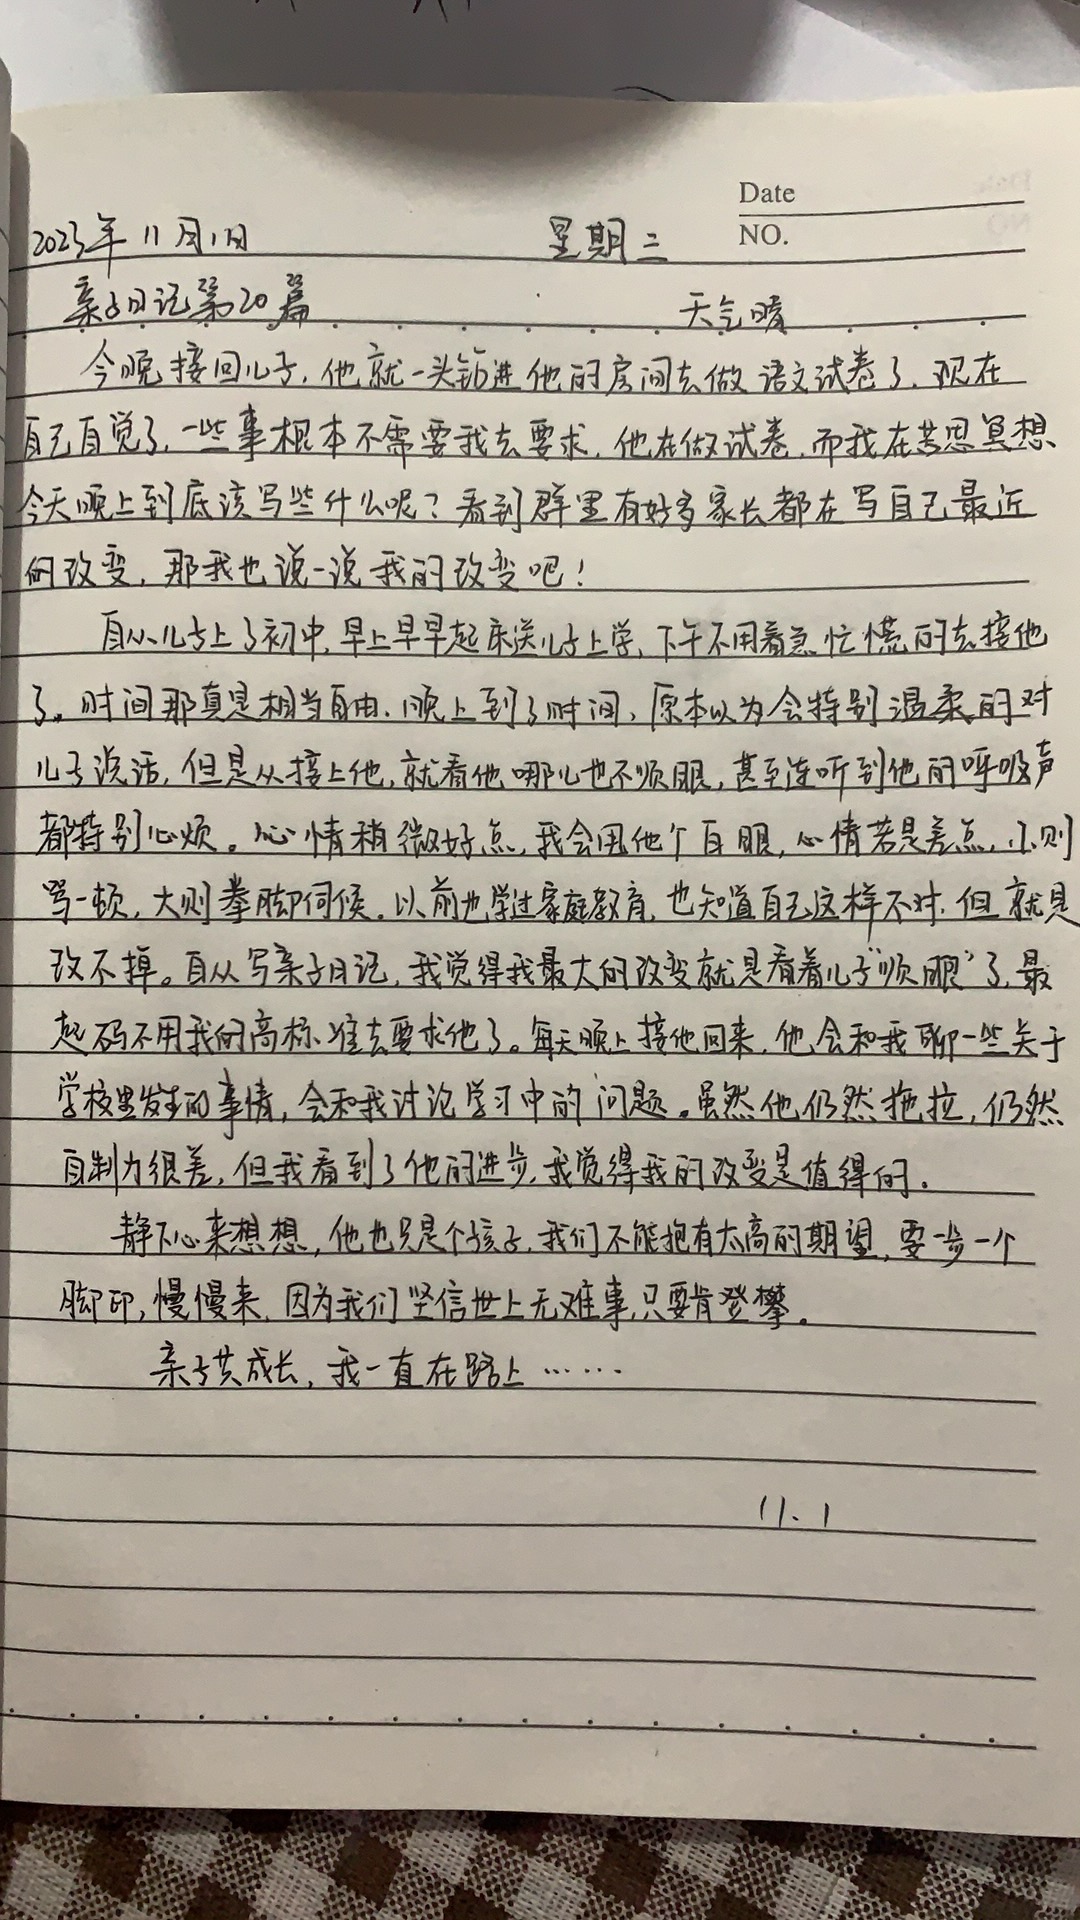 Date
NO.
2023年11月1日 星期三
亲子日记第20篇 天气晴
今晚接回儿子，他就一头钻进他的房间去做语文试卷了。现在
自己自觉了，一些事根本不需要我去要求，他在做试卷，而我在苦思冥想
今天晚上到底该写些什么呢？看到群里有好多家长都在写自己最近
的改变，那我也说一说我的改变吧！
自从儿子上了初中，早上早早起床送儿子上学，下午不用着急忙慌的去接他
了。时间那真是相当自由，晚上到了时间，原本以为会特别温柔的对
儿子说话，但是从接上他，就看他哪儿也不顺眼，甚至连听到他的呼吸声
都特别心烦。心情稍微好点，我会甩他个白眼，心情若是差点，小则
骂一顿，大则拳脚伺候。以前也学过家庭教育，也知道自己这样不对，但就是
改不掉。自从写亲子日记，我觉得我最大的改变就是看着儿子“顺眼”了，最
起码不用我的高标准去要求他了。每天晚上接他回来，他会和我聊一些关于
学校里发生的事情，会和我讨论学习中的问题。虽然他仍然拖拉，仍然
自制力很差，但我看到了他的进步，我觉得我的改变是值得的。
静下心来想想，他也只是个孩子，我们不能抱有太高的期望，要一步一个
脚印，慢慢来，因为我们坚信世上无难事，只要肯登攀。
亲子共成长，我一直在路上……
11.1